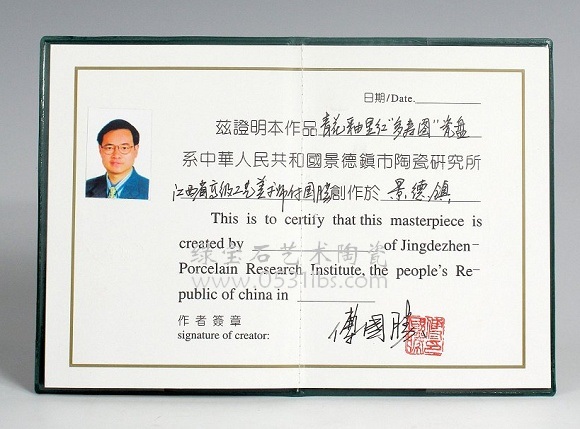 日期/Date.
茲證明本作品青花釉里红"多寿图"瓷盘
系中華人民共和國景德鎮市陶瓷研究所
江西省高级工艺美术师付国胜創作於景德鎮
This is to certify that this masterpiece is
created by of Jingdezhen
Porcelain Research Institute, the people's Re-
public of china in
作者簽章
signature of creator:
傅國勝
绿宝石艺术陶瓷
www.0531lbs.com